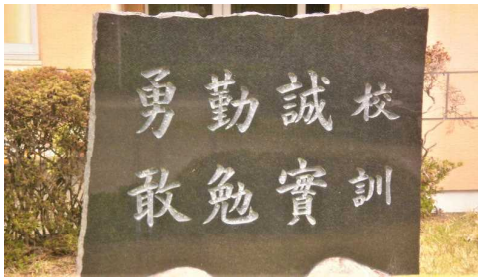 校訓
誠實
勤勉
勇敢